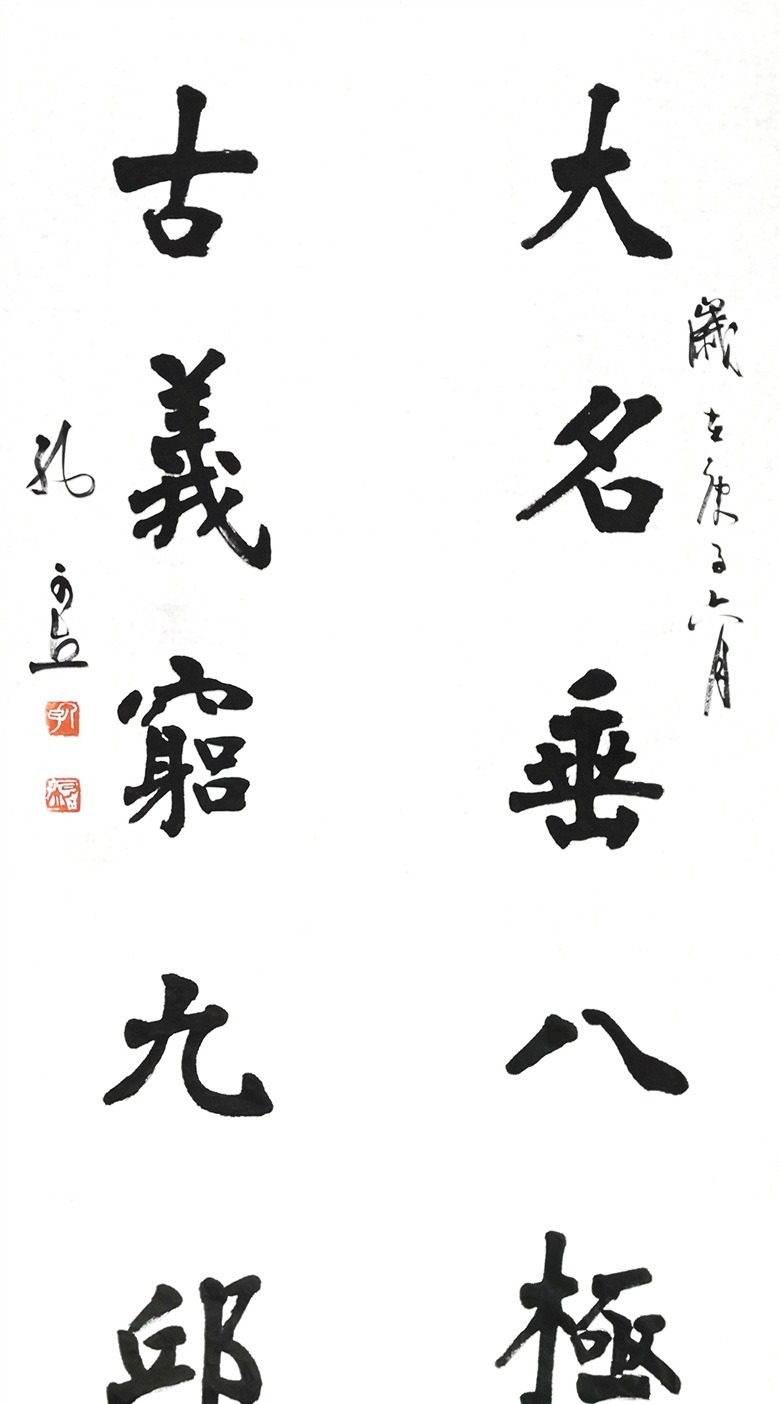 大名垂八極
歲在庚子六月
古義窮九邱
孔